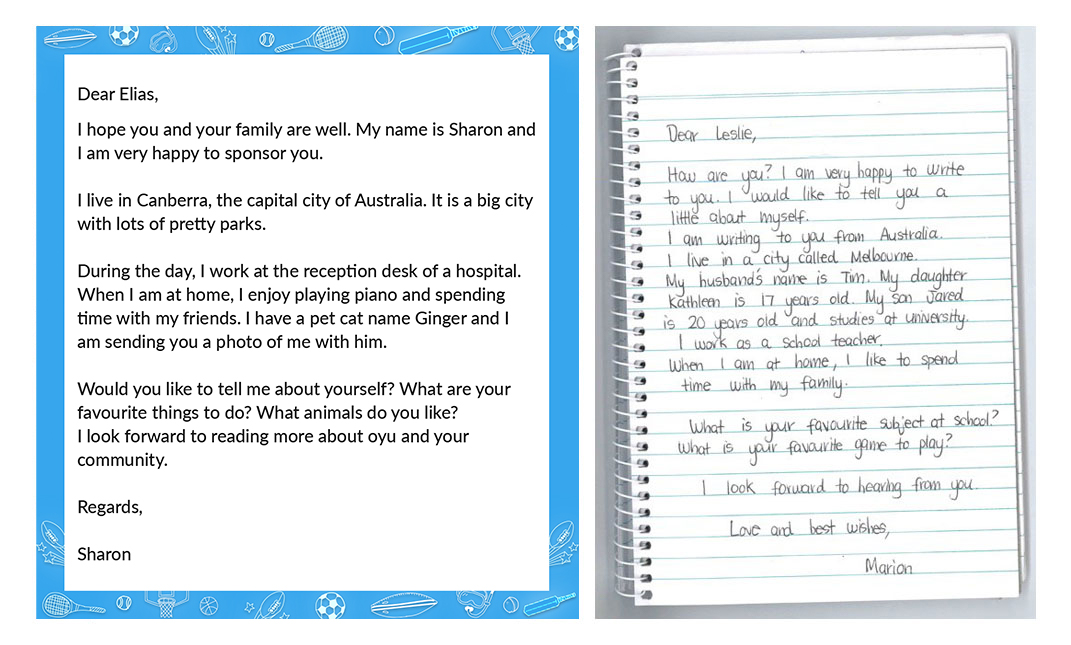 Dear Elias,
I hope you and your family are well. My name is Sharon and
I am very happy to sponsor you.
I live in Canberra, the capital city of Australia. It is a big city
with lots of pretty parks.
During the day, I work at the reception desk of a hospital.
When I am at home, I enjoy playing piano and spending
time with my friends. I have a pet cat name Ginger and I
am sending you a photo of me with him.
Would you like to tell me about yourself? What are your
favourite things to do? What animals do you like?
I look forward to reading more about oyu and your
community.
Regards,
Sharon
Dear Leslie,
How are you? I am very happy to write
to you. I would like to tell you a
little about myself.
I am writing to you from Australia.
I live in a city called Melbourne.
My husband's name is Tim. My daughter
Kathleen is 17 years old. My son Jared
is 20 years old and studies at university.
I work as a school teacher.
When I am at home, I like to spend
time with my family.
What is your favourite subject at school?
What is your favourite game to play?
I look forward to hearing from you.
Love and best wishes,
Marion